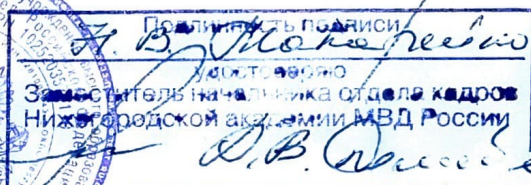 Подлинность подписи
Н. В. Макарейко
удостоверяю
Заместитель начальника отдела кадров
Нижегородской академии МВД России
Д.В.